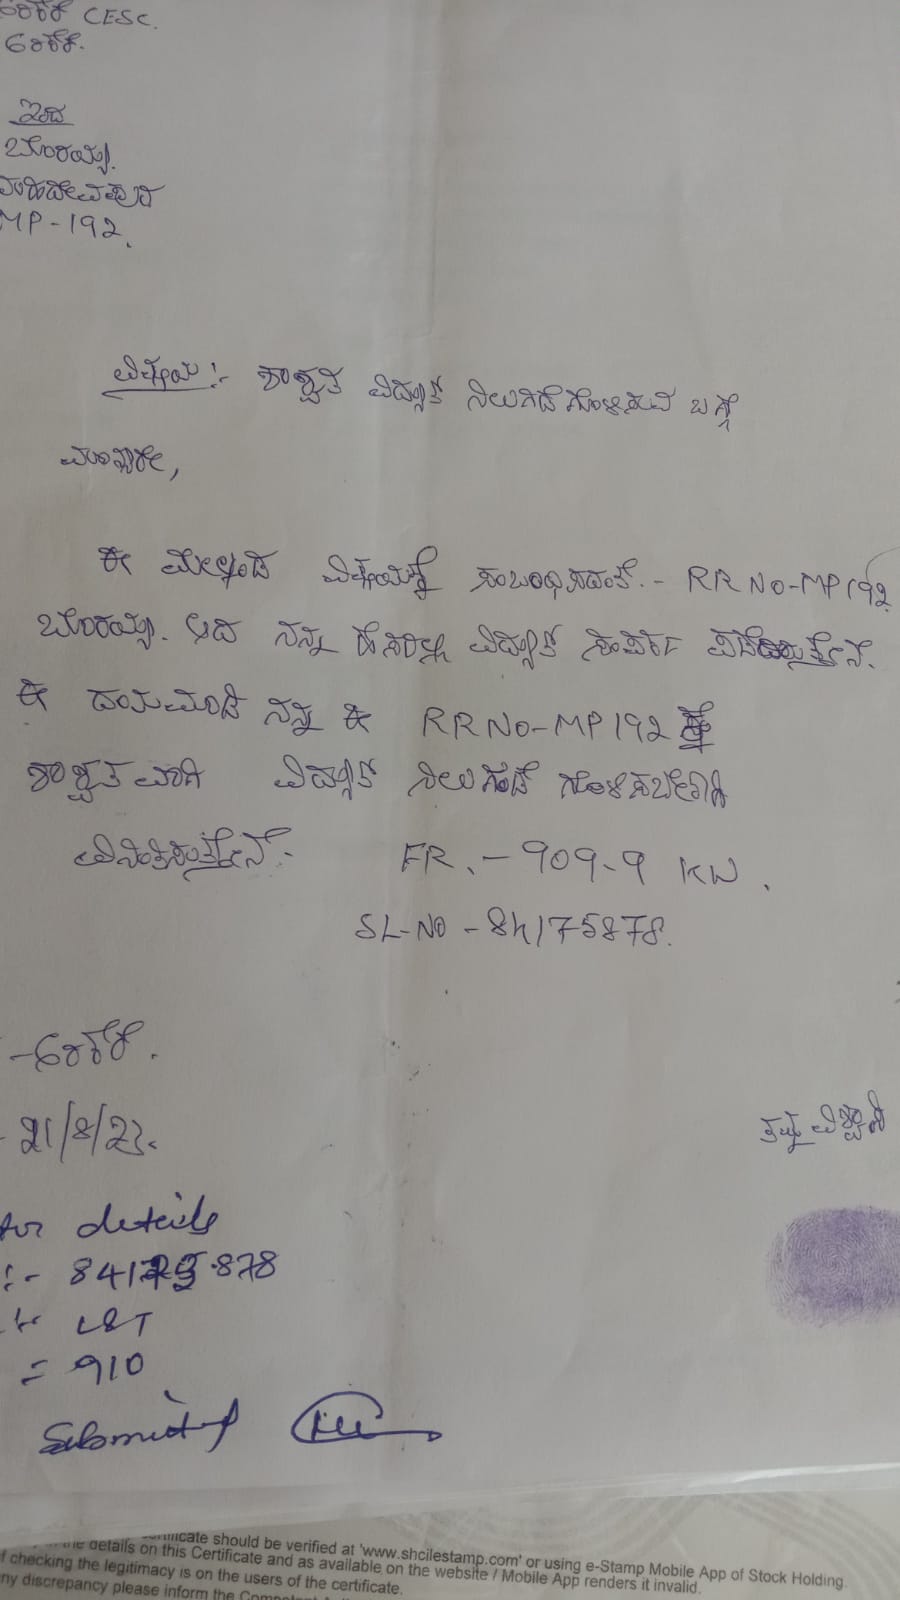 CESC.
ಇಂದ
ಬೋರಯ್ಯ.
MP-192.
ವಿಷಯ:- ಶಾಶ್ವತ ವಿದ್ಯುತ್ ನಿಲುಗಡೆಗೊಳಿಸುವ ಬಗ್ಗೆ
ಮಾನ್ಯರೇ,
ಈ ಮೇಲ್ಕಂಡ ವಿಷಯಕ್ಕೆ ಸಂಬಂಧಿಸಿದಂತೆ.- RR NO-MP192
ಬೋರಯ್ಯ. ಆದ ನನ್ನ ಹೆಸರಲ್ಲಿ ವಿದ್ಯುತ್ ಸಂಪರ್ಕ ಪಡೆದಿರುತ್ತೇನೆ.
ಈ ದಯಮಾಡಿ ನನ್ನ ಈ RR NO-MP192 ಕ್ಕೆ
ಶಾಶ್ವತವಾಗಿ ವಿದ್ಯುತ್ ನಿಲುಗಡೆ ಗೊಳಿಸಬೇಕಾಗಿ
ವಿನಂತಿಸುತ್ತೇನೆ.- FR.-909-9 KW.
SL-NO-84175878.
21/8/23.
ತಮ್ಮ ವಿಶ್ವಾಸಿ
details
L&T
= 910
Submitted
certificate should be verified at 'www.shcilestamp.com' or using e-Stamp Mobile App of Stock Holding.
the details on this Certificate and as available on the website / Mobile App renders it invalid.
f checking the legitimacy is on the users of the certificate.
ny discrepancy please inform the